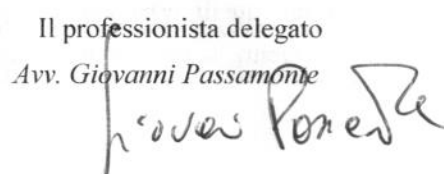 Il professionista delegato
Avv. Giovanni Passamonte